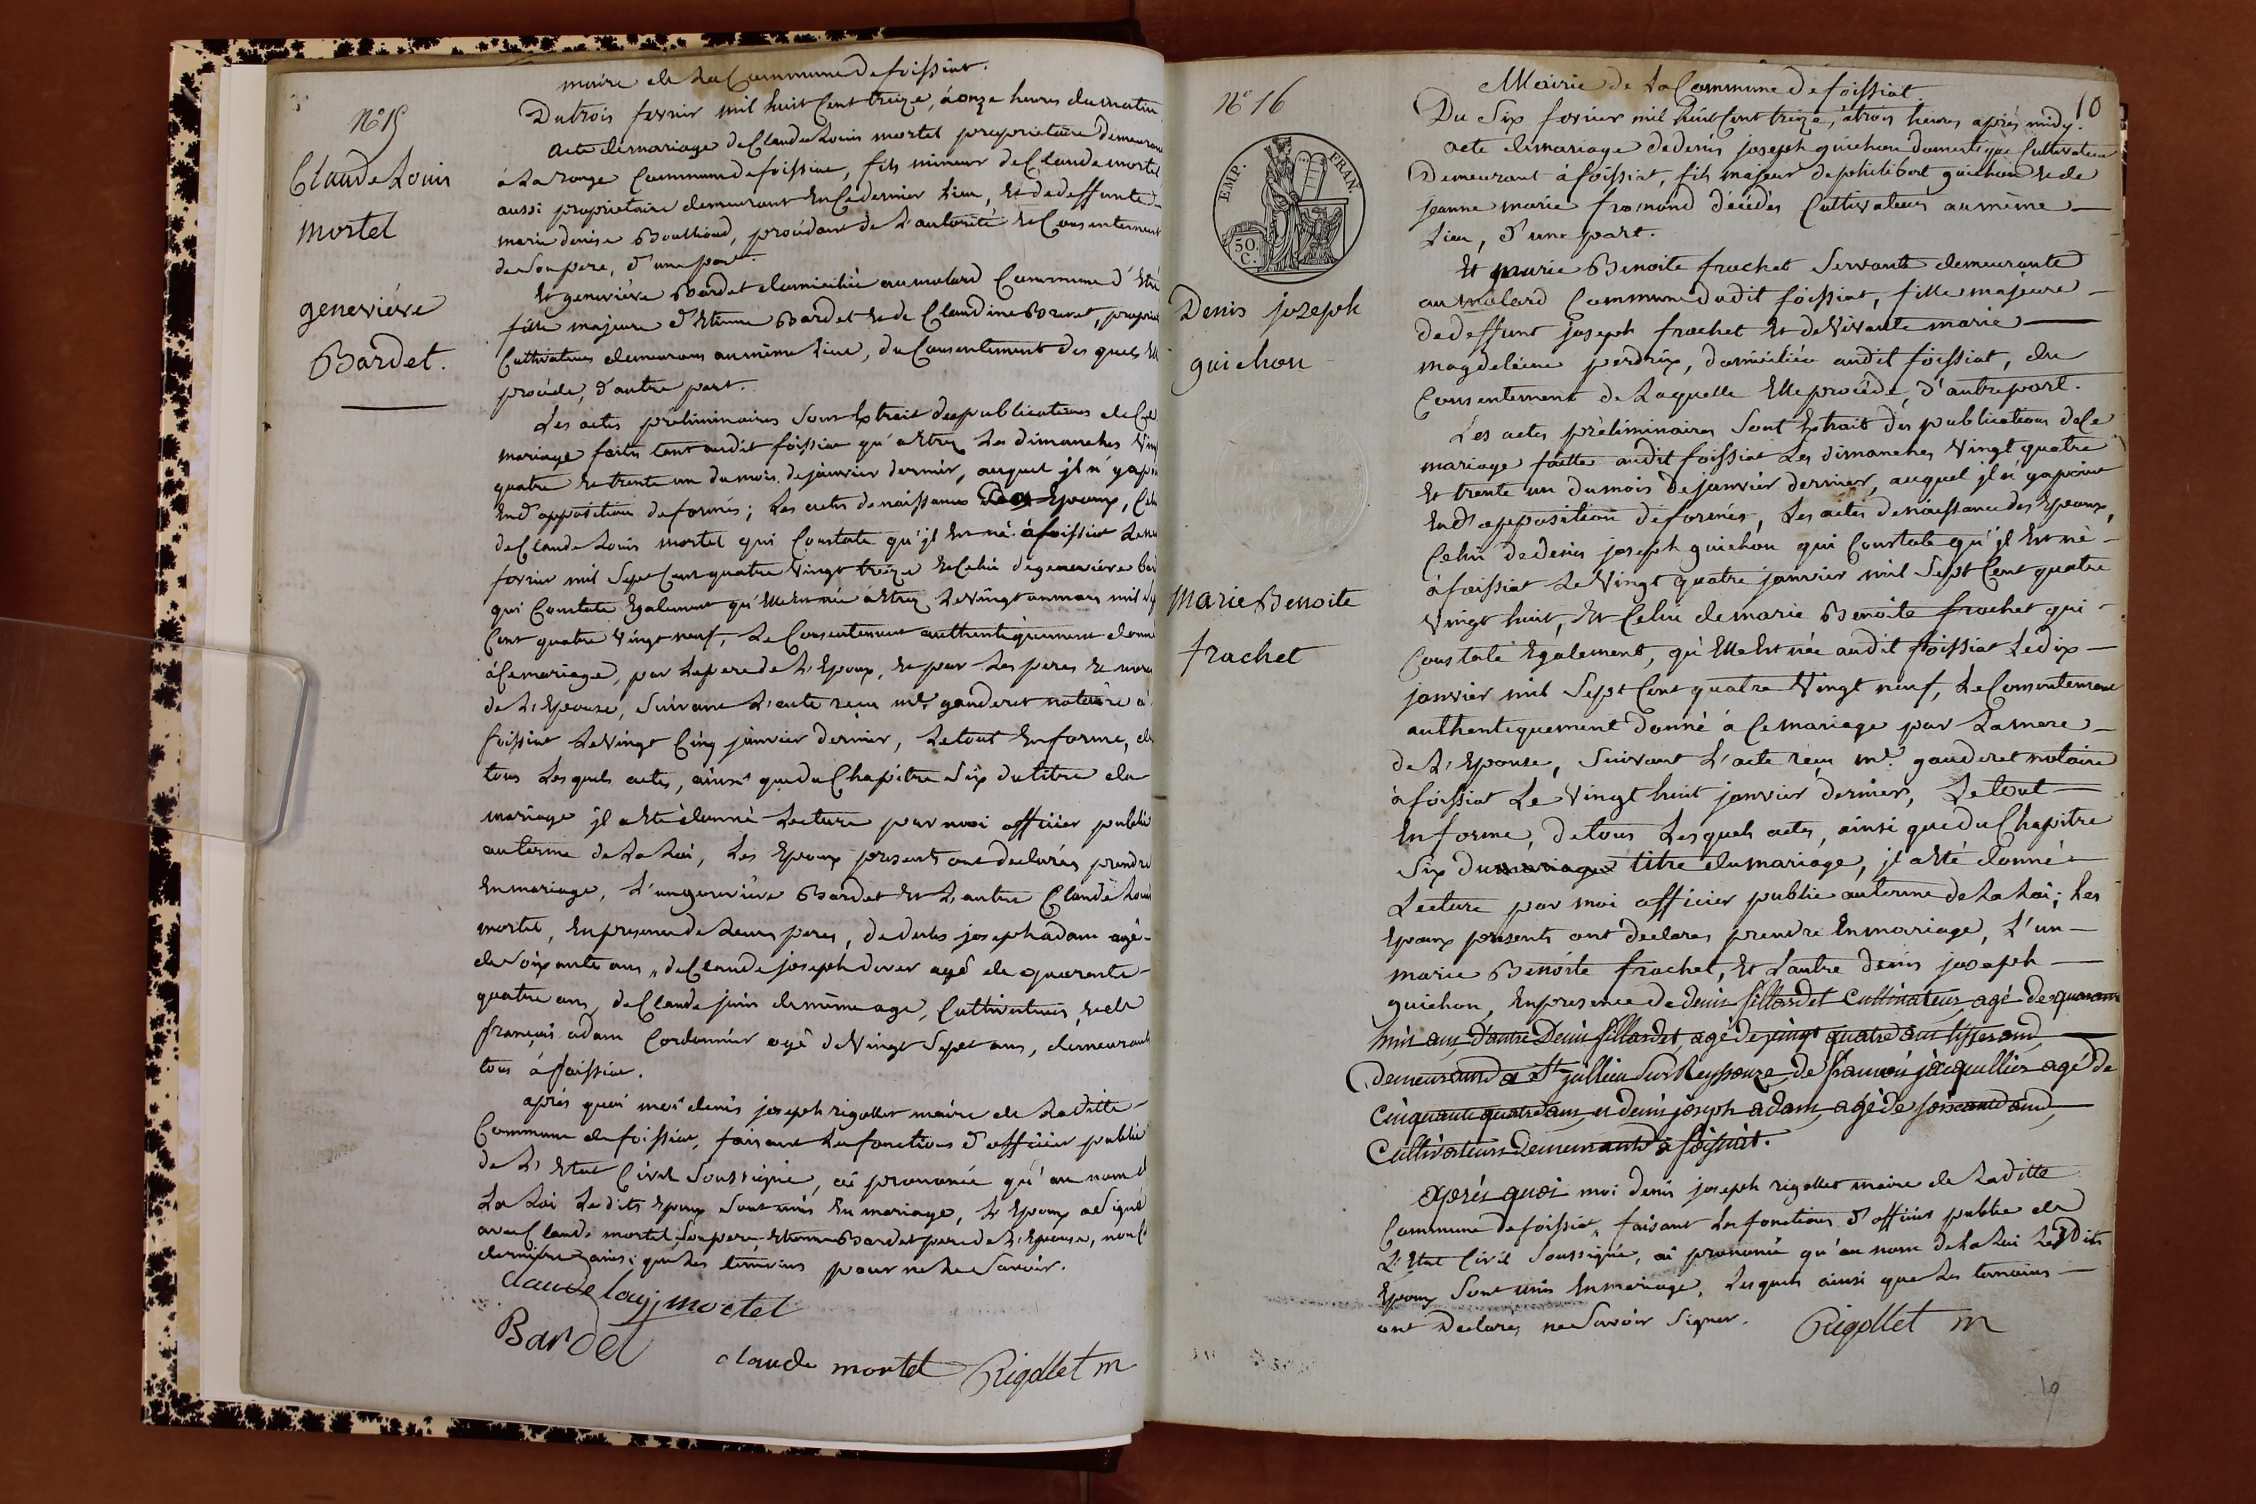 maire de la Commune de foissiat.
N° 15
Du trois fevrier mil huit Cent treize, à onze heures du matin
acte de mariage de Claude Louis mortel proprietaire demeurant
Claude Louis
mortel
à la Commune de foissiat, fils mineur de Claude mortel
aussi proprietaire demeurant en Ce dernier Lieu, Et de deffunte
marie denise procédant de L'autorité et Consentement
de Son pere, d'une part.
genevieve
Bardet.
Et genevieve Bardet domiciliée au molard Commune d'Etré
fille majeure d'Etienne Bardet et de Claudine propriet
Cultivateurs demeurans au même Lieu, du Consentement des quels Elle
procède, d'autre part.
Les actes préliminaires Sont Extrait des publications de Ce
mariage faites tant audit foissiat qu'à Etrez Les dimanches Vingt
quatre Et trente un du mois de janvier dernier, auquel jl n'y a point
Eud'opposition de formés; Les actes de naissances des Epoux, Celui
de Claude Louis mortel qui Constate qu'jl Est né à foissiat Le
fevrier mil Sept Cent quatre Vingt treize et Celui de genevieve Bar
qui Constate Egalement qu'Elle Est née à Etrez Le Vingt un mars mil Sept
Cent quatre Vingt neuf, Le Consentement authentiquement donné
à Ce mariage, par Le pere de L'Epoux, et par Les peres Et mere
de L'Epouse, Suivant L'acte reçu me ganderet notaire à
foissiat Le Vingt Cinq janvier dernier, Le tout En forme, de
tous Lesquels actes, ainsi que du Chapitre Six du titre du
mariage jl a Eté donné Lecture par moi officier public
au terme de La Loi, Les Epoux presents ont declarés prendre
En mariage, L'un genevieve Bardet Et L'autre Claude Louis
mortel, En presence de Leurs peres, de denis joseph adam agé
de Soixante ans, de Claude joseph agé de quarante
quatre ans, de Claude juin de même age, Cultivateurs, et de
françois adam Cordonnier agé de Vingt Sept ans, demeurant
tous à foissiat.
après quoi moi denis joseph rigollet maire de La ditte
Commune de foissiat, faisant Les fonctions d'officier public
de L'Etat Civil Soussigné, ai prononcé qu'au nom de
La Loi Lesdits Epoux Sont unis En mariage, L'Epoux a Signé
avec Claude mortel Son pere, Etienne Bardet pere de L'Epouse, non Ce
derniere ainsi que Les témoins pour ne Le Savoir.
Claude louij mortel
Bardel
claude mortel Rigollet m
Mairie de La Commune de foissiat
10
N° 16
Du Six fevrier mil huit Cent treize, à trois heures après midy.
acte de mariage de denis joseph guichon domestique Cultivateur
Demeurant à foissiat, fils majeur de philibert guichon et de
jeanne marie fromond décédés Cultivateurs au même
Lieu, d'une part.
EMP. FRAN.
50 C.
Denis jozeph
guichon
Et marie Benoite frachet Servante demeurante
au molard Commune dudit foissiat, fille majeure
de deffunt joseph frachet Et de Vivante marie
magdeleine perdrix, domiciliée audit foissiat, du
Consentement de Laquelle Elle procède, d'autre part.
Les actes préliminaires Sont Extrait des publications de Ce
mariage faitte audit foissiat Les dimanches Vingt quatre
Et trente un du mois de janvier dernier, auquel jl n'y a point
Eud'opposition de formés, Les actes de naissance des Epoux,
Celui de denis joseph guichon qui Constate qu'jl Est né
à foissiat Le Vingt quatre janvier mil Sept Cent quatre
Marie Benoite
frachet
Vingt huit, Et Celui de marie Benoite frachet qui
Constate Egalement, qu'Elle Est née audit foissiat Le dix
janvier mil Sept Cent quatre Vingt neuf, Le Consentement
authentiquement donné à Ce mariage par La mere
de L'Epouse, Suivant L'acte reçu me ganderet notaire
à foissiat Le Vingt huit janvier dernier, Le tout
En forme, de tous Lesquels actes, ainsi que du Chapitre
Six du mariage titre du mariage, jl a Eté donné
Lecture par moi officier public au terme de La Loi; Les
Epoux presents ont declarés prendre En mariage, L'un
marie Benoite frachet, Et L'autre denis joseph
guichon, En presence de denis fillardet Cultivateur agé de quarante
huit ans, d'autre Denis fillardet, agé de vingt quatre ans tisserand
demeurand a St jullien Sur Reyssouze, de françois jacquillier agé de
Cinquante quatre ans, et denis joseph adam, agé de soixante ans,
Cultivateurs Demeurants à foissiat.
après quoi moi denis joseph rigollet maire de La ditte
Commune de foissiat, faisant Les fonctions d'officier public de
L'Etat Civil Soussigné, ai prononcé qu'au nom de La Loi Lesdits
Epoux Sont unis En mariage, Lesquels ainsi que Les temoins
ont Declarés ne Savoir Signer.
Rigollet m
19